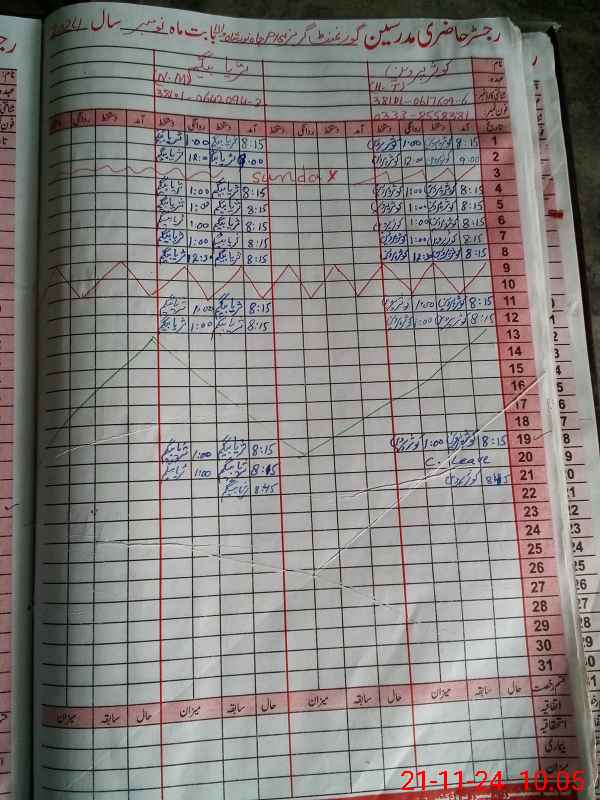 رجسٹر حاضری مدرسین گورنمنٹ گرلز بابت ماہ نومبر سال 2024
نام کوثر پروین ثریا بیگم
عہدہ (H.T) (N.M)
شناختی کارڈ نمبر 38101-0617609-6 38101-0642094-2
فون نمبر 0333-8558381
تاریخ آمد دستخط روانگی دستخط آمد دستخط روانگی دستخط آمد دستخط روانگی دستخط آمد دستخط روانگی دستخط
1 8:15 کوثر پروین 1:00 کوثر پروین 8:15 ثریا بیگم 1:00 ثریا بیگم
2 9:00 12:00 9:00 ثریا بیگم 12:00 ثریا بیگم
3 Sunday
4 8:15 کوثر پروین 1:00 کوثر پروین 8:15 ثریا بیگم 1:00 ثریا بیگم
5 8:15 کوثر پروین 1:00 کوثر پروین 8:15 ثریا بیگم 1:00 ثریا بیگم
6 8:15 کوثر پروین 1:00 کوثر پروین 8:15 ثریا بیگم 1:00 ثریا بیگم
7 8:15 کوثر پروین 1:00 کوثر پروین 8:15 ثریا بیگم 1:00 ثریا بیگم
8 8:15 کوثر پروین 12:30 کوثر پروین 8:15 ثریا بیگم 12:30 ثریا بیگم
9
10
11 8:15 کوثر پروین 1:00 کوثر پروین 8:15 ثریا بیگم 1:00 ثریا بیگم
12 8:15 کوثر پروین 1:00 کوثر پروین 8:15 ثریا بیگم 1:00 ثریا بیگم
13
14
15
16
17
18
19 8:15 کوثر پروین 1:00 کوثر پروین 8:15 ثریا بیگم 1:00 ثریا بیگم
20 C. Leave 8:15 ثریا بیگم 1:00 ثریا بیگم
21 8:45 کوثر پروین 8:45 ثریا بیگم
22
23
24
25
26
27
28
29
30
31
قسم رخصت حال سابقہ میزان حال سابقہ میزان حال سابقہ میزان حال سابقہ میزان
اتفاقیہ
استحقاقیہ
بیماری
میزان
21-11-24 10:05